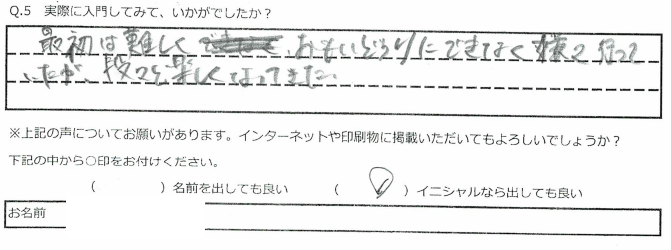 Q.5 実際に入門してみて、いかがでしたか？
最初は難しく、おもいどうりにできなく
いたが、段々と楽しくなってきた。
※上記の声についてお願いがあります。インターネットや印刷物に掲載いただいてもよろしいでしょうか？
下記の中から○印をお付けください。
（　　　　）名前を出しても良い　（　○　）イニシャルなら出しても良い
お名前